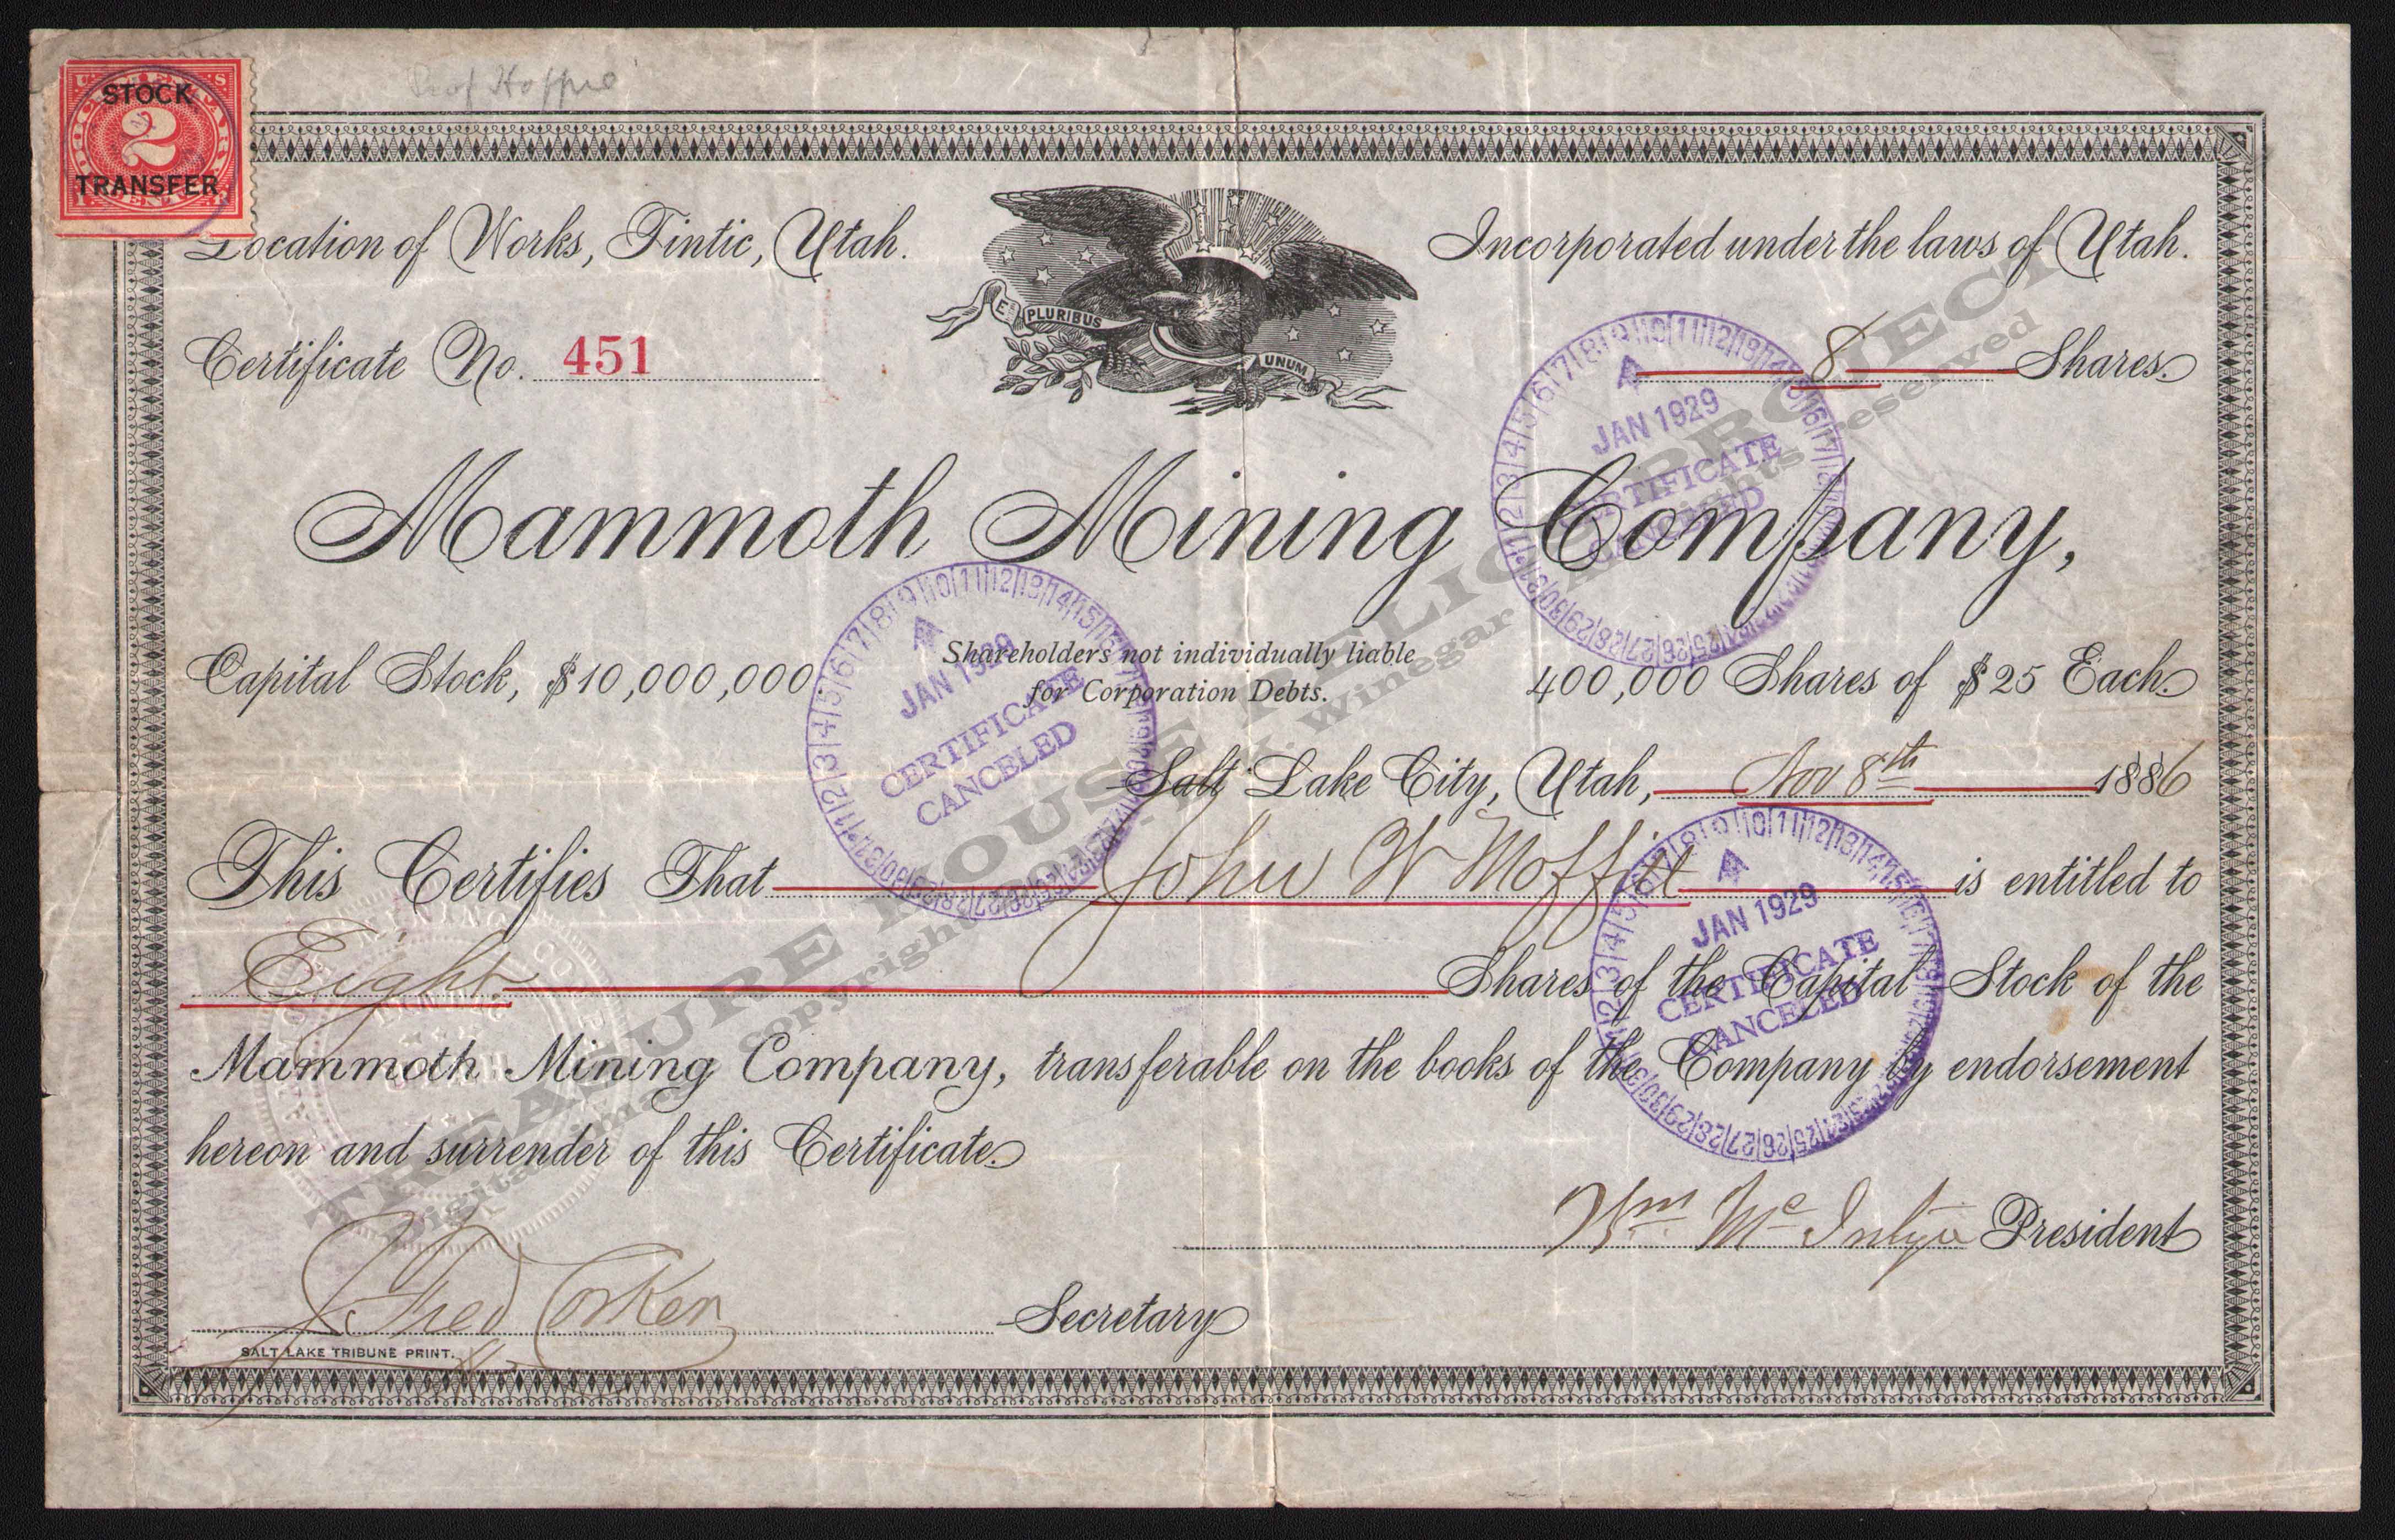 U.S. DOCUMENTARY
STOCK
2
TRANSFER
Prof Hoffre
Location of Works, Tintic, Utah.
E PLURIBUS
UNUM
Incorporated under the laws of Utah.
Certificate No. 451
8 Shares.
Mammoth Mining Company,
Capital Stock, $10,000,000
Shareholders not individually liable
for Corporation Debts.
400,000 Shares of $25 Each.
Salt Lake City, Utah, Nov 8th 1886
This Certifies That John W Moffitt is entitled to
Eight Shares of the Capital Stock of the
Mammoth Mining Company, transferable on the books of the Company by endorsement
hereon and surrender of this Certificate.
Wm Mc Intyre President
Fred Corker Secretary
SALT LAKE TRIBUNE PRINT.
JAN 1929
CERTIFICATE
CANCELED
JAN 1929
CERTIFICATE
CANCELED
JAN 1929
CERTIFICATE
CANCELED
TREASURE HOUSE RELICS PROJECT
Digital image copyright Winegar All rights reserved